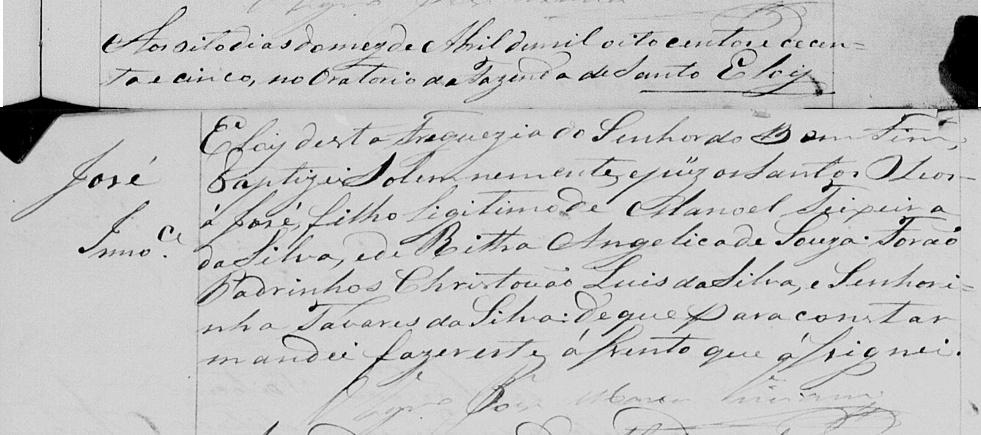 Aos oito dias do mez de Abril de mil oito centos e cecen-
ta e cinco, no Oratorio da Fazenda de Santo Eloij
Eloij desta Freguezia do Senhor do Bom Fim,
José
Baptizei Solemnemente, e puz os Santos Oleos
á José, filho Ligitimo de Manoel Teixeira
Inno.ce
da Silva, e de Ritha Angelica de Souza: Forão
Padrinhos Christovão Luis da Silva, e Senhori-
nha Tavares da Silva: de que para constar
mandei fazer este ássento que ássignei.